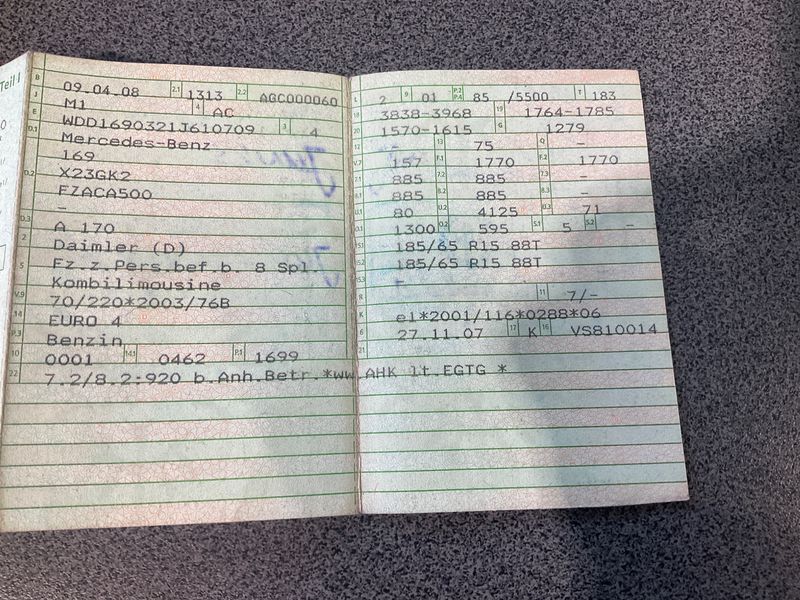 Teil I
B 09.04.08 2.1 1313 2.2 AGC000060
J M1 4 AC
E WDD1690321J610709 3 4
D.1 Mercedes-Benz
169
D.2 X23GK2
FZACA500
-
D.3 A 170
2 Daimler (D)
5 Fz.z.Pers.bef.b. 8 Spl.
Kombilimousine
V.9 70/220*2003/76B
14 EURO 4
P.3 Benzin
10 0001 14.1 0462 P.1 1699
22 7.2/8.2:920 b.Anh.Betr.*ww.AHK lt.EGTG *
L 2 9 01 P.2 P.4 85 /5500 T 183
18 3838-3968 19 1764-1785
20 1570-1615 G 1279
12 13 75 Q -
V.7 157 F.1 1770 F.2 1770
7.1 885 7.2 885 7.3 -
8.1 885 8.2 885 8.3 -
U.1 80 U.2 4125 U.3 71
O.1 1300 O.2 595 S.1 5 S.2 -
15.1 185/65 R15 88T
15.2 185/65 R15 88T
15.3 -
R 11 7/-
K e1*2001/116*0288*06
6 27.11.07 17 K 16 VS810014
21